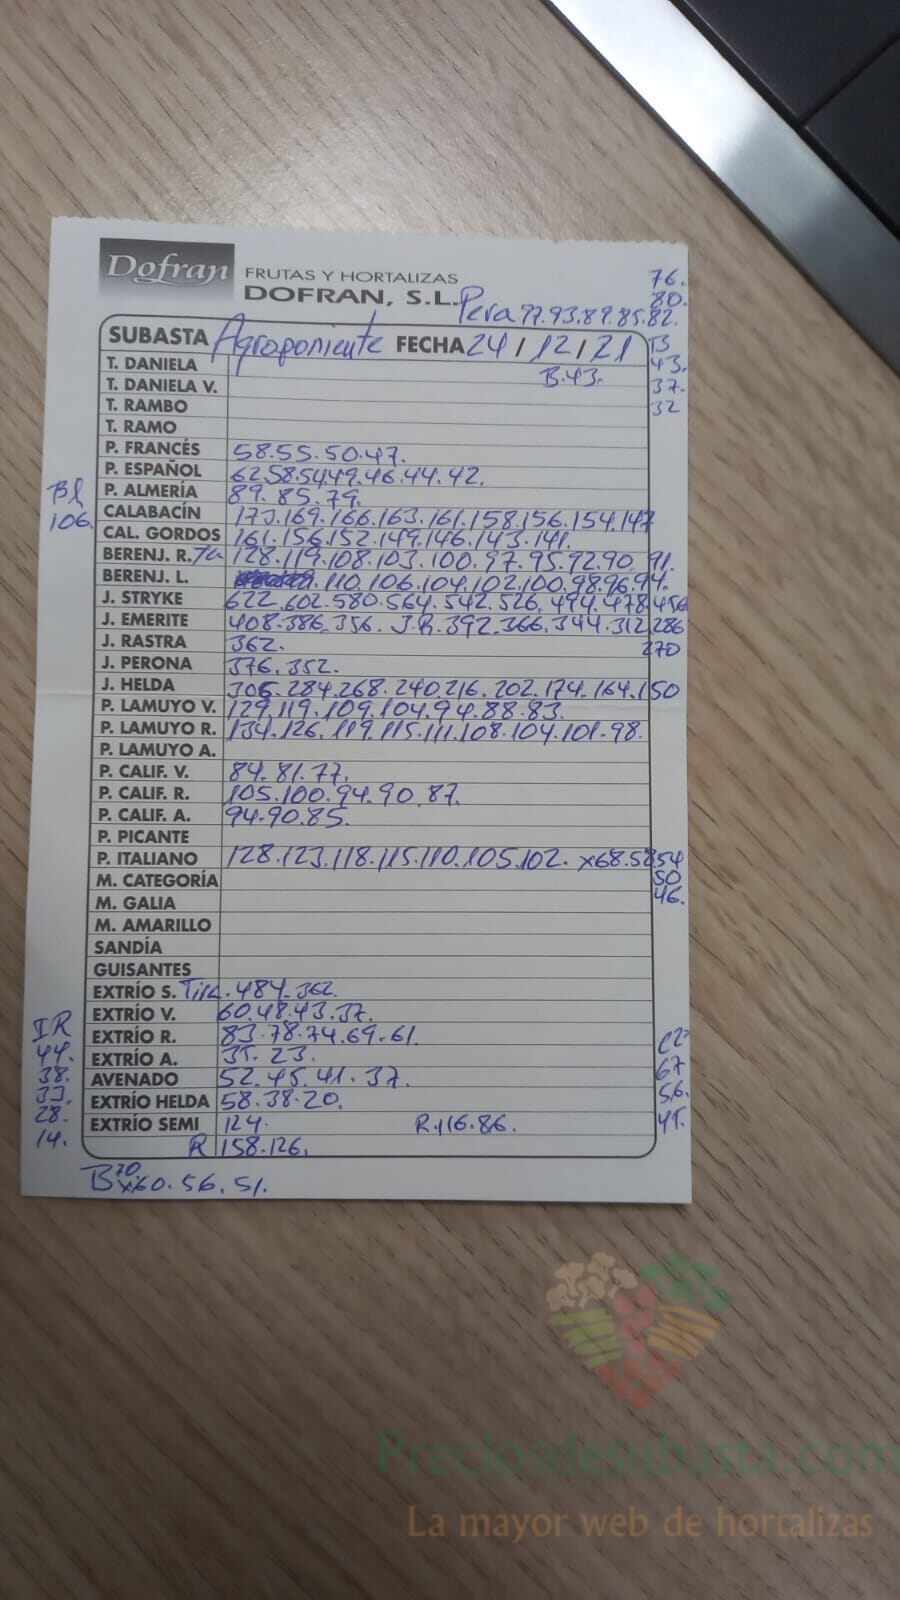 Dofran FRUTAS Y HORTALIZAS
DOFRAN, S.L. Pera 97.93.89.85.82.
76.
80.
SUBASTA Agroponiente FECHA 24/12/21
B.43.
43.
37.
32
T. DANIELA
T. DANIELA V.
T. RAMBO
T. RAMO
P. FRANCÉS 58.55.50.47.
P. ESPAÑOL 62.58.54.49.46.44.42.
P. ALMERÍA 89.85.79.
Bl
106.
CALABACÍN 173.169.166.163.161.158.156.154.147
CAL. GORDOS 161.156.152.149.146.143.141.
BERENJ. R. 128.119.108.103.100.97.95.92.90.91.
BERENJ. L. 110.106.104.102.100.98.96.94.
J. STRYKE 622.602.580.564.542.526.494.478.456
J. EMERITE 408.386.356. J.R.392.366.344.312.286
270
J. RASTRA 362.
J. PERONA 376.352.
J. HELDA 306.284.268.240.216.202.174.164.150
P. LAMUYO V. 129.119.109.104.94.88.83.
P. LAMUYO R. 134.126.119.115.111.108.104.101.98.
P. LAMUYO A.
P. CALIF. V. 84.81.77.
P. CALIF. R. 105.100.94.90.87.
P. CALIF. A. 94.90.85.
P. PICANTE
P. ITALIANO 128.123.118.115.110.105.102. x68.58.54
50
46.
M. CATEGORÍA
M. GALIA
M. AMARILLO
SANDÍA
GUISANTES
EXTRÍO S. 484.362.
EXTRÍO V. 60.48.43.37.
EXTRÍO R. 83.78.74.69.61.
EXTRÍO A. 35.23.
AVENADO 52.45.41.37.
EXTRÍO HELDA 58.38.20.
EXTRÍO SEMI 124. R.116.86.
R 158.126.
IR
44.
38.
33.
28.
14.
67
56.
45.
B 70.
x60.56.51.
Preciosdesubasta.com
La mayor web de hortalizas